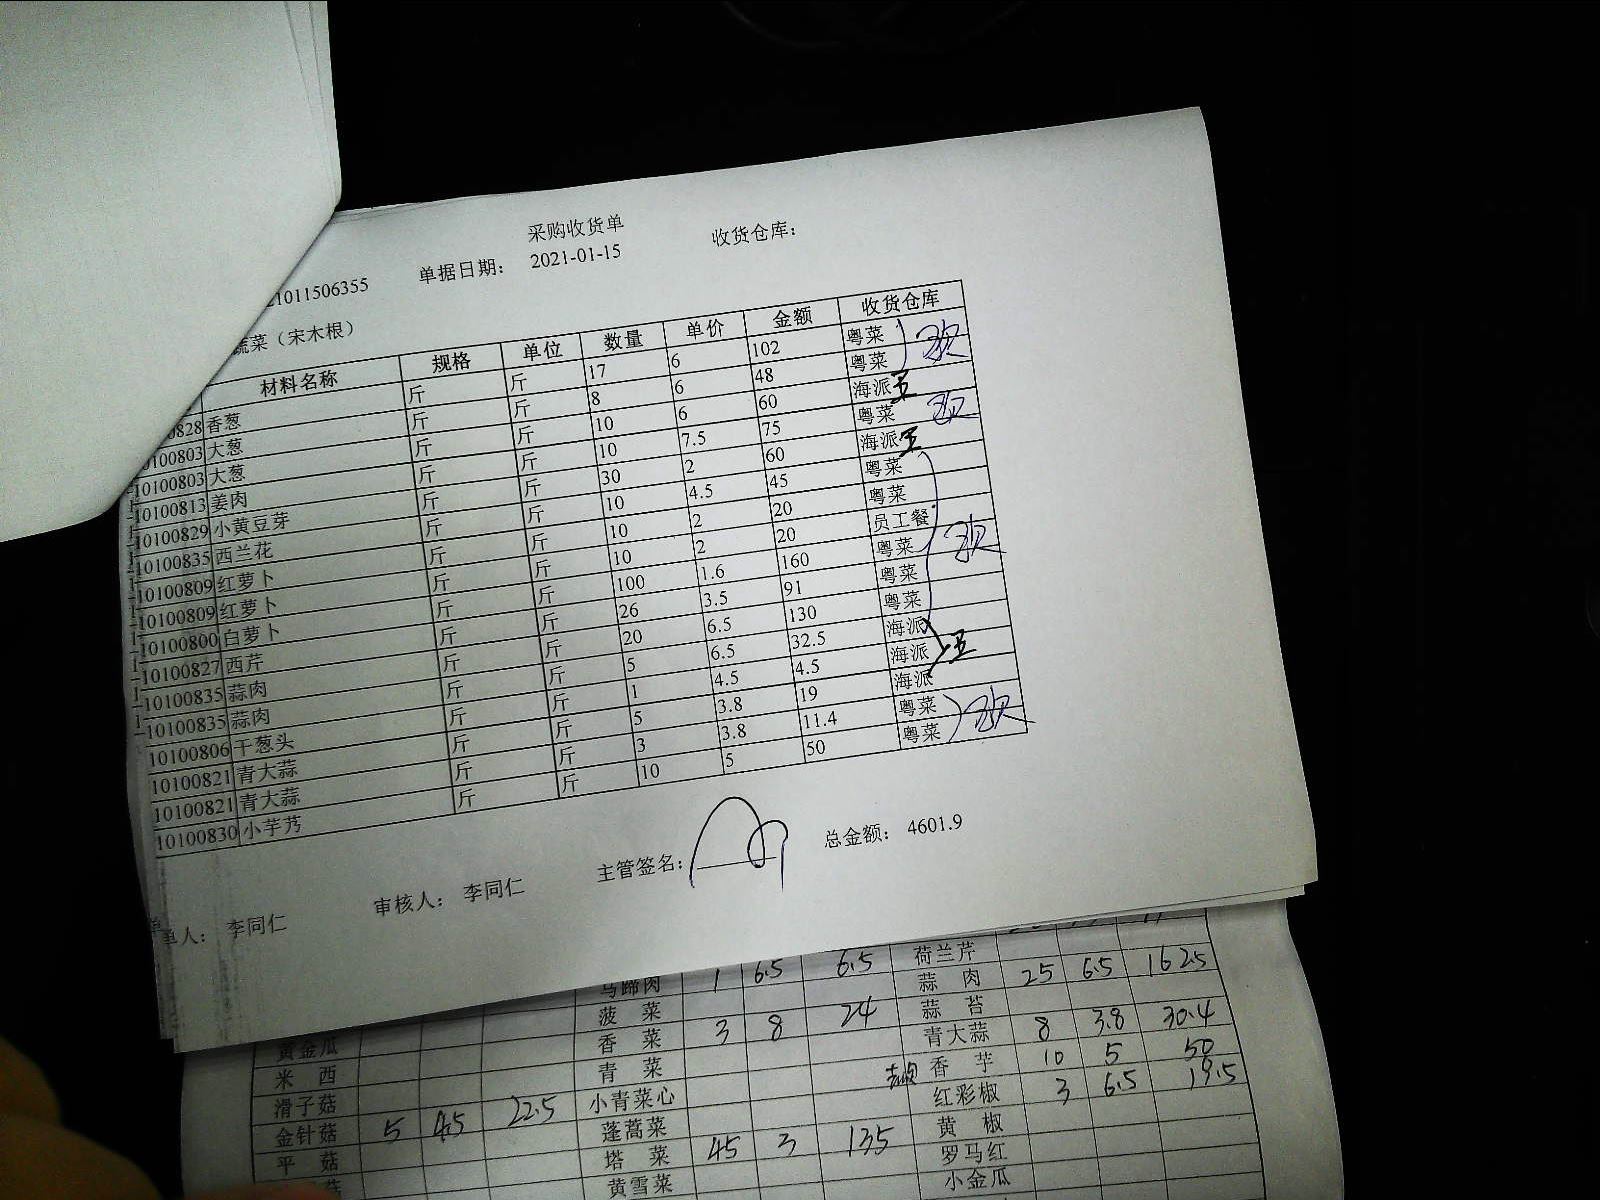 采购收货单
21011506355 单据日期： 2021-01-15 收货仓库：
蔬菜（宋木根）
材料名称 规格 单位 数量 单价 金额 收货仓库
0828 香葱 斤 斤 17 6 102 粤菜
0100803 大葱 斤 斤 8 6 48 粤菜
10100803 大葱 斤 斤 10 6 60 海派 王
10100813 姜肉 斤 斤 10 7.5 75 粤菜
10100829 小黄豆芽 斤 斤 30 2 60 海派 王
10100835 西兰花 斤 斤 10 4.5 45 粤菜
10100809 红萝卜 斤 斤 10 2 20 粤菜
10100809 红萝卜 斤 斤 10 2 20 员工餐
10100800 白萝卜 斤 斤 100 1.6 160 粤菜
10100827 西芹 斤 斤 26 3.5 91 粤菜
10100835 蒜肉 斤 斤 20 6.5 130 粤菜
10100835 蒜肉 斤 斤 5 6.5 32.5 海派
10100806 干葱头 斤 斤 1 4.5 4.5 海派 王
10100821 青大蒜 斤 斤 5 3.8 19 海派
10100821 青大蒜 斤 斤 3 3.8 11.4 粤菜
10100830 小芋艿 斤 斤 10 5 50 粤菜
单人： 李同仁 审核人： 李同仁 主管签名： 总金额： 4601.9
马蹄肉 1 6.5 6.5 荷兰芹
菠 菜 蒜 肉 25 6.5 162.5
黄金瓜 香 菜 3 8 24 蒜 苔
米 西 青 菜 青大蒜 8 3.8 30.4
滑子菇 小青菜心 香 芋 10 5 50
金针菇 5 4.5 22.5 蓬蒿菜 红彩椒 3 6.5 19.5
平 菇 塔 菜 45 3 135 黄 椒
黄雪菜 罗马红
小金瓜